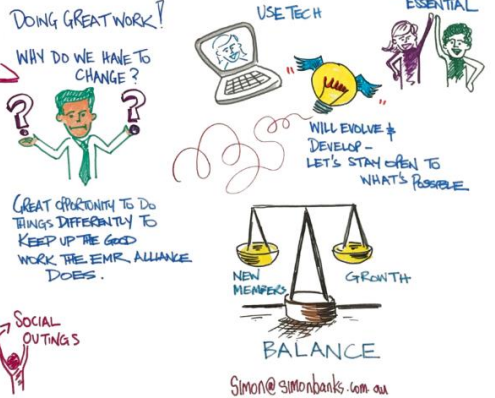 DOING GREAT WORK!
WHY DO WE HAVE TO
CHANGE?
? ?
GREAT OPPORTUNITY TO DO
THINGS DIFFERENTLY TO
KEEP UP THE GOOD
WORK THE EMR ALLIANCE
DOES.
SOCIAL
OUTINGS
USE TECH
ESSENTIAL
WILL EVOLVE &
DEVELOP –
LET'S STAY OPEN TO
WHAT'S POSSIBLE
NEW
MEMBERS
GROWTH
BALANCE
Simon@simonbanks.com.au